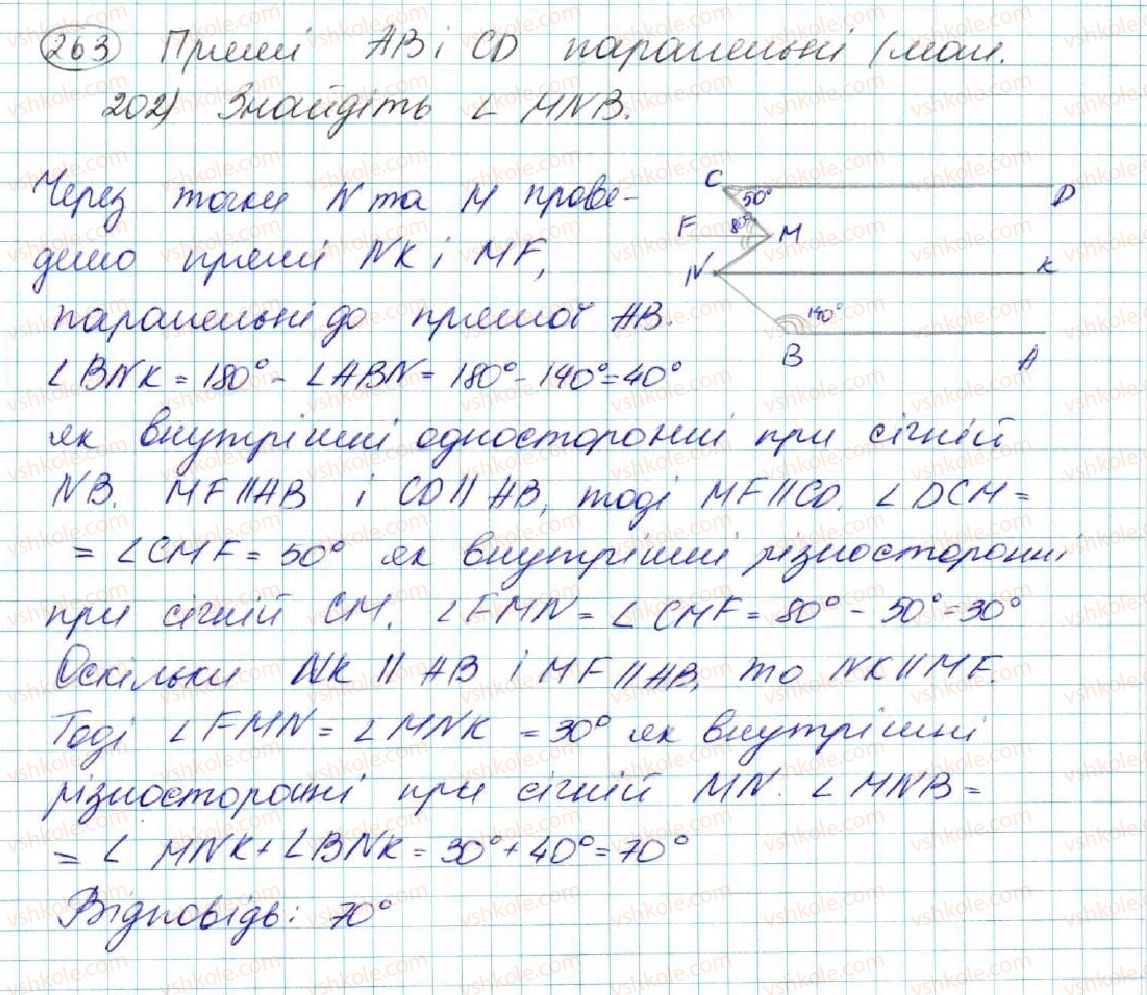 263 Прямі AB і CD паралельні (мал.
202) Знайдіть ∠ MNB.
Через точки N та M прове-
демо прямі NK і MF,
паралельні до прямої AB.
∠BNK = 180° - ∠ABN = 180° - 140° = 40°
як внутрішні односторонні при січній
NB. MF || AB і CD || AB, тоді MF || CD. ∠DCM =
= ∠CMF = 50° як внутрішні різносторонні
при січній CM. ∠FMN = ∠CMF = 80° - 50° = 30°
Оскільки NK || AB і MF || AB, то NK || MF.
Тоді ∠FMN = ∠MNK = 30° як внутрішні
різносторонні при січній MN. ∠MNB =
= ∠ MNK + ∠BNK = 30° + 40° = 70°
Відповідь: 70°
C 50° D
F 80° M
N K
140°
B A
vshkole.com